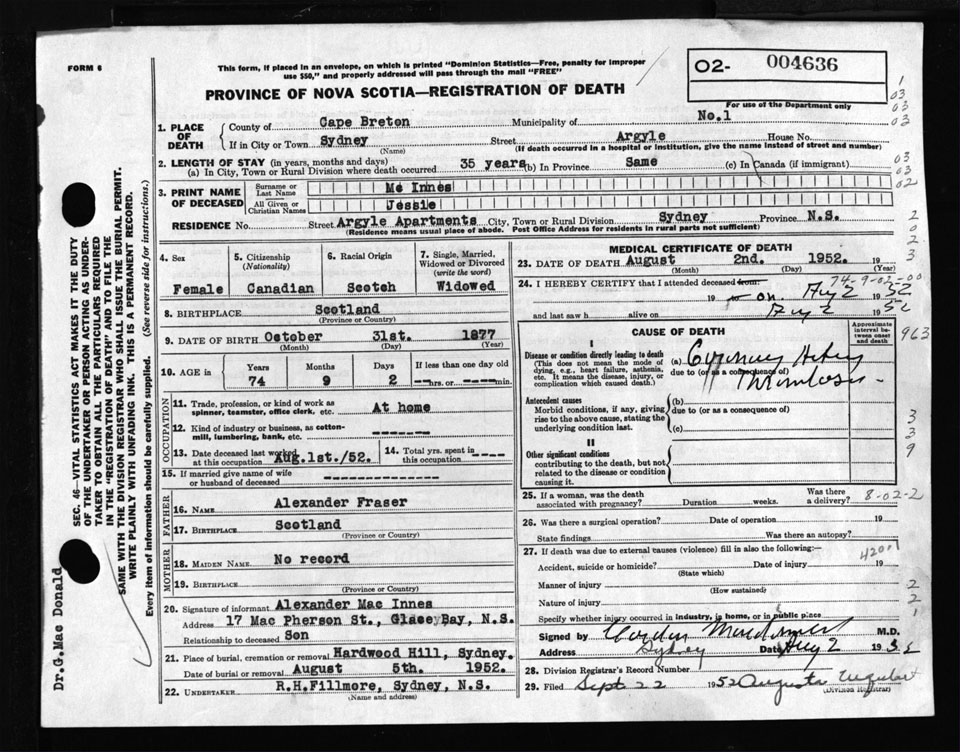 FORM 6
This form, if placed in an envelope, on which is printed "Dominion Statistics—Free, penalty for improper
use $50," and properly addressed will pass through the mail "FREE"
02- 004636
For use of the Department only
PROVINCE OF NOVA SCOTIA—REGISTRATION OF DEATH
1. PLACE OF DEATH { County of Cape Breton Municipality of No.1
If in City or Town Sydney Street Argyle House No.
(Name) (If death occurred in a hospital or institution, give the name instead of street and number)
2. LENGTH OF STAY (in years, months and days)
(a) In City, Town or Rural Division where death occurred 35 years (b) In Province Same (c) In Canada (if immigrant)
3. PRINT NAME OF DECEASED { Surname or Last Name Mc Innes
All Given or Christian Names Jessie
RESIDENCE No. Street Argyle Apartments City, Town or Rural Division Sydney Province N.S.
(Residence means usual place of abode. Post Office Address for residents in rural parts not sufficient)
4. Sex 5. Citizenship (Nationality) 6. Racial Origin 7. Single, Married, Widowed or Divorced (write the word)
Female Canadian Scotch Widowed
8. BIRTHPLACE Scotland
(Province or Country)
9. DATE OF BIRTH October 31st. 1877
(Month) (Day) (Year)
10. AGE in Years Months Days If less than one day old
74 9 2 ---hrs. or -----min.
OCCUPATION
11. Trade, profession, or kind of work as spinner, teamster, office clerk, etc. At home
12. Kind of industry or business, as cotton-mill, lumbering, bank, etc. -------
13. Date deceased last worked at this occupation Aug.1st./52. 14. Total yrs. spent in this occupation ----
15. If married give name of wife or husband of deceased --------------
FATHER
16. Name Alexander Fraser
17. Birthplace Scotland
(Province or Country)
MOTHER
18. Maiden Name No record
19. Birthplace
(Province or Country)
20. Signature of informant Alexander Mac Innes
Address 17 Mac Pherson St., Glace Bay, N.S.
Relationship to deceased Son
21. Place of burial, cremation or removal Hardwood Hill, Sydney.
Date of burial or removal August 5th. 1952.
22. Undertaker R.H.Fillmore, Sydney, N.S.
(Name and address)
MEDICAL CERTIFICATE OF DEATH
23. DATE OF DEATH August 2nd. 1952. 19
(Month) (Day) (Year)
74-9-02-00
24. I HEREBY CERTIFY that I attended deceased from:
19 to on Aug 2 1952
and last saw h alive on Aug 2 1952
CAUSE OF DEATH
Approximate interval between onset and death
963
I
Disease or condition directly leading to death (a)
(This does not mean the mode of dying, e.g., heart failure, asthenia, etc. It means the disease, injury, or complication which caused death.)
due to (or as a consequence of)
Thrombosis
Antecedent causes (b)
Morbid conditions, if any, giving rise to the above cause, stating the underlying condition last.
due to (or as a consequence of)
(c)
II
Other significant conditions
contributing to the death, but not related to the disease or condition causing it.
25. If a woman, was the death associated with pregnancy? Duration weeks. Was there a delivery? 8-02-2
26. Was there a surgical operation? Date of operation 19
State findings Was there an autopsy?
27. If death was due to external causes (violence) fill in also the following:— 420.1
Accident, suicide or homicide? Date of injury 19
(State which)
Manner of injury
(How sustained)
Nature of injury
Specify whether injury occurred in industry, in home, or in public place
Signed by Gordon MacDonald M.D.
Address Sydney Date Aug 2 1952
28. Division Registrar's Record Number
29. Filed Sept 22 1952 Augusta Urquhart
(Division Registrar)
SEC. 46—VITAL STATISTICS ACT MAKES IT THE DUTY
OF THE UNDERTAKER OR PERSON ACTING AS UNDER-
TAKER TO OBTAIN ALL THE PARTICULARS REQUIRED
IN THE "REGISTRATION OF DEATH" AND TO FILE THE
SAME WITH THE DIVISION REGISTRAR WHO SHALL ISSUE THE BURIAL PERMIT.
WRITE PLAINLY WITH UNFADING INK. THIS IS A PERMANENT RECORD.
Every item of information should be carefully supplied. (See reverse side for instructions.)
Dr.G.Mac Donald
1
03
03
03
03
03
02
2
0
2
3
3
3
9
2
2
1